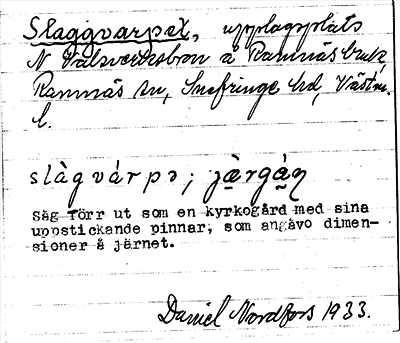 Slaggvarpet, upplagsplats
N Valsverksbron å Ramnäs bruk,
Ramnäs sn, Snefringe hd, Västm.
l.
slàgvárpə; jä̀rgá̤ɳ
Såg förr ut som en kyrkogård med sina
uppstickande pinnar, som angåvo dimen-
sioner å järnet.
Daniel Nordfors 1933.